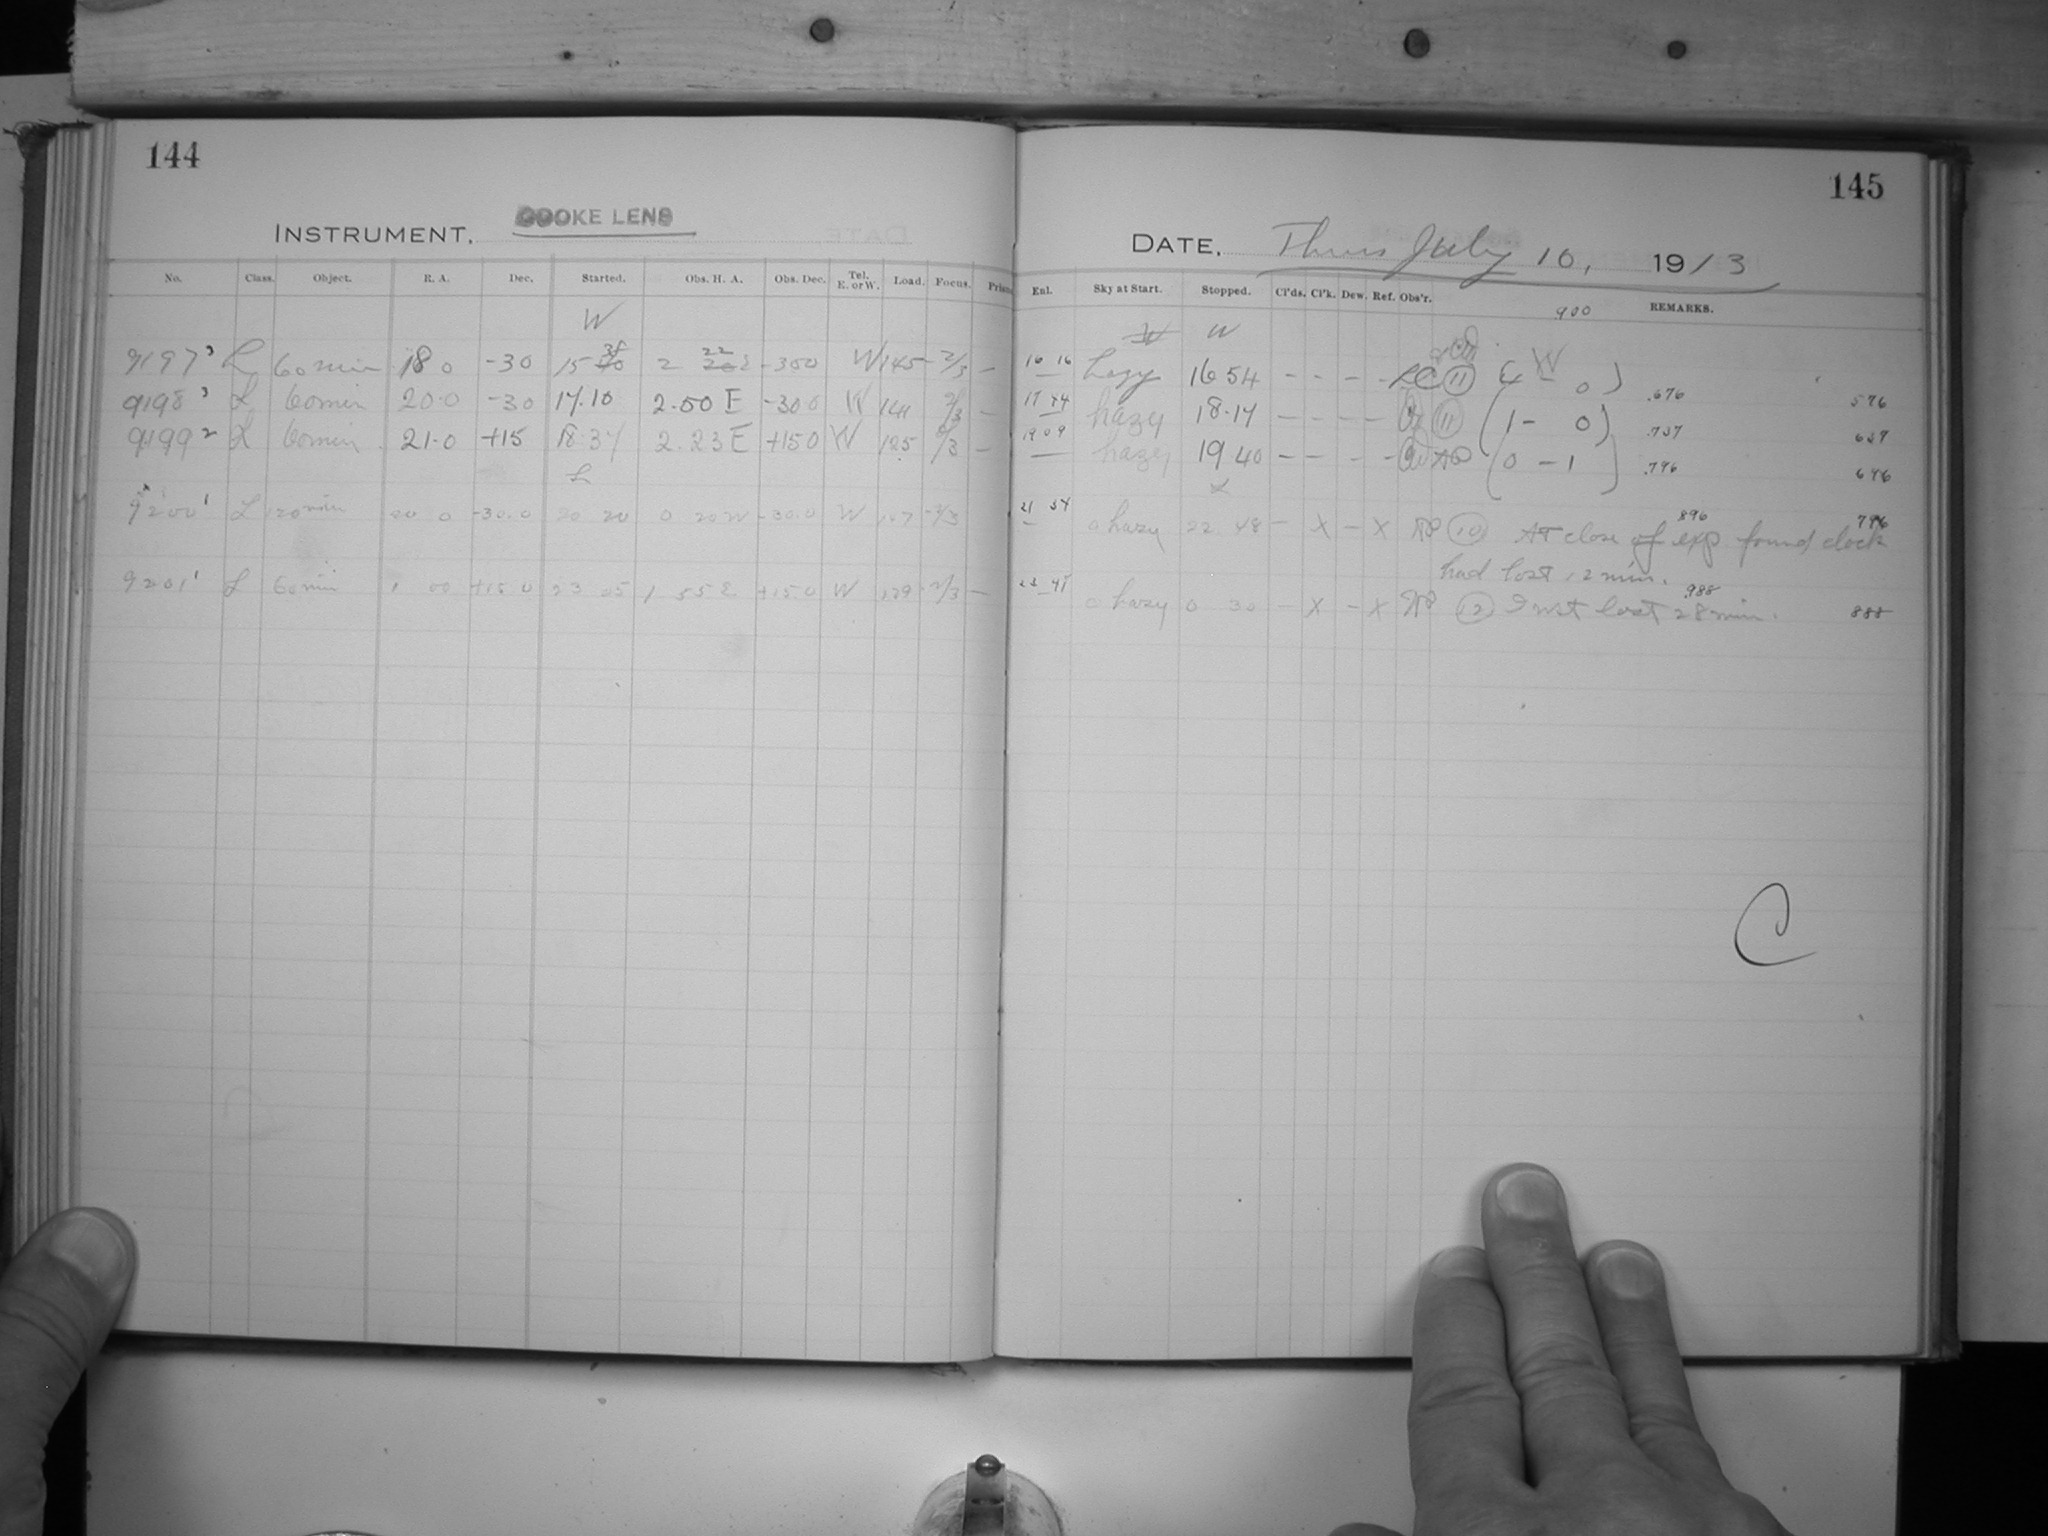 144
INSTRUMENT. COOKE LENS
No. Class. Object. R. A. Dec. Started. Obs. H. A. Obs. Dec. Tel. E. or W. Load. Focus. Prism
W
9197 3 L 60 min 18 0 -30 15 38 2 22 E -300 W 145 -2/3 -
9198 3 L 60 min 20.0 -30 17.10 2.50 E -300 W 141 2/3 -
9199 2 L 60 min 21.0 +15 18.37 2.23 E +150 W 125 2/3 -
L
9200 1 L 120 min 20 0 -30.0 20 20 0 20 W -30.0 W 147 -2/3
9201 1 L 60 min 1 00 +15 0 23 25 1 55 E +15.0 W 129 -2/3 -
145
DATE. Thurs July 10, 1913
Enl. Sky at Start. Stopped. Cl'ds. Cl'k. Dew. Ref. Obs'r. REMARKS.
900
W W
16 16 Hazy 16 54 - - - - LC 11 (4 - 0) .676 576
17 44 hazy 18.17 - - - - 11 (1 - 0) .737 637
19 09 hazy 19 40 - - - - (0 - 1) .796 696
L
21 34 hazy 22 48 - X - X 10 At close of exp found clock 896 796
had lost 12 min.
23 45 hazy 0 30 - X - X 12 Inst lost 28 min. .988 888
C